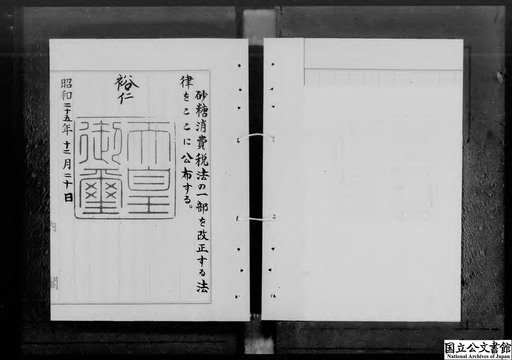 砂糖消費税法の一部を改正する法
律をここに公布する。
裕仁
天皇
御璽
昭和二十五年十二月二十日
国立公文書館
National Archives of Japan